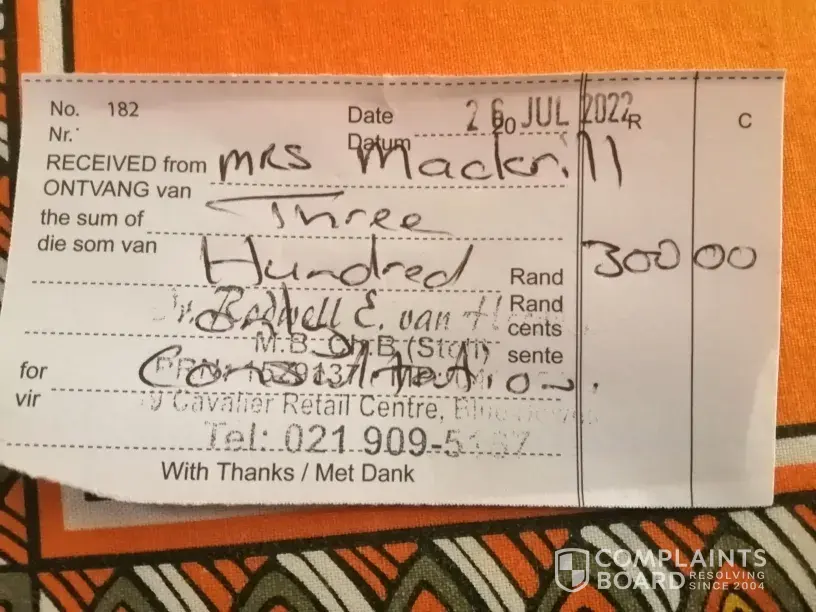 No. 182
Nr.
Date 26 JUL 2022
Datum 20 R C
RECEIVED from MRS Mackrill
ONTVANG van
the sum of Three
die som van Hundred Rand 300 00
Rand
Dr. E. van
cents
M.B. Ch.B (Stell)
sente
for Consultation.
vir
Cavalier Retail Centre,
Tel: 021 909-
With Thanks / Met Dank
COMPLAINTS
BOARD RESOLVING
SINCE 2004